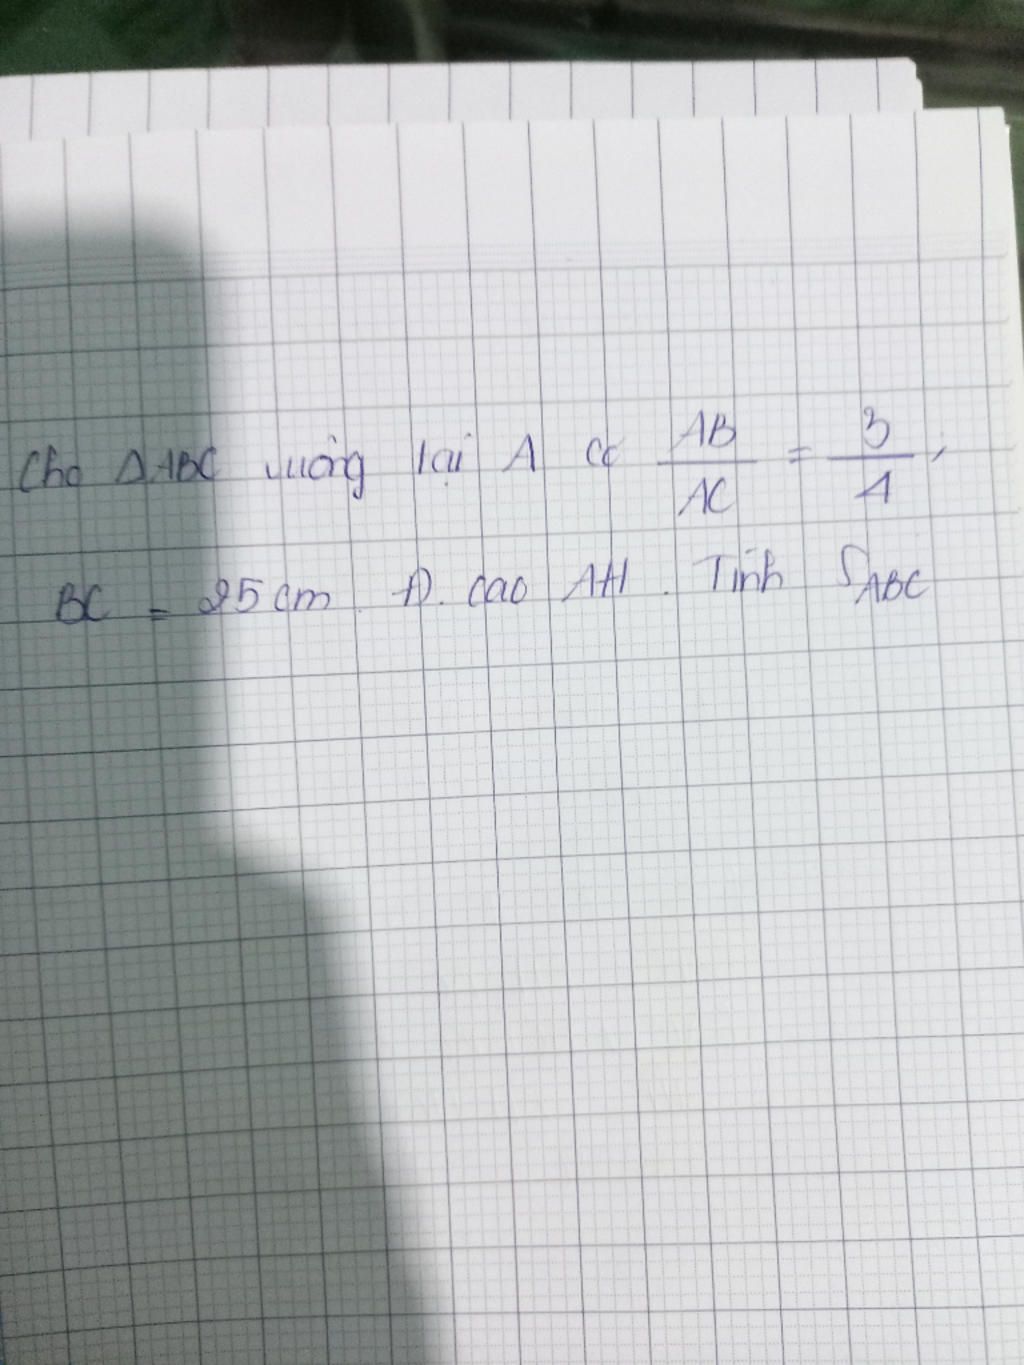 Cho ΔABC vuông tại A có AB/AC = 3/4,
BC = 25cm. Đ. cao AH. Tính S_ABC